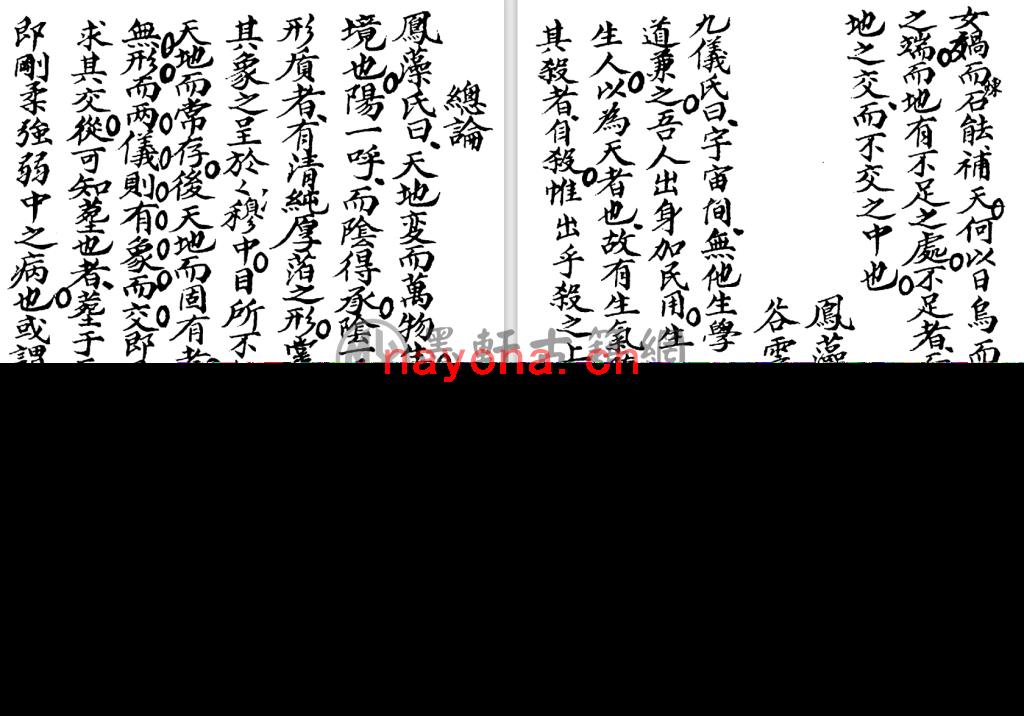 女媧而石能補天何以日烏而
煉
之端而地有不足之處不足者
地之交而不交之中也
鳳藻
谷雲
九儀氏曰宇宙間無他生學
道兼之吾人出身加民用生
生人以為天者也故有生氣
其殺者自殺惟出乎殺之上
總論
鳳藻氏曰天地变而萬物生
境也陽一呼而陰得承陰一
形質者有清純厚落之形當
其象之呈於穆中目所不
天地而常存後天地而固有者
無形而两儀則有象而交即
求其交從可知墓也者墓于
即剛柔強弱中之病也或謂
墨軒古籍網
nayona.cn